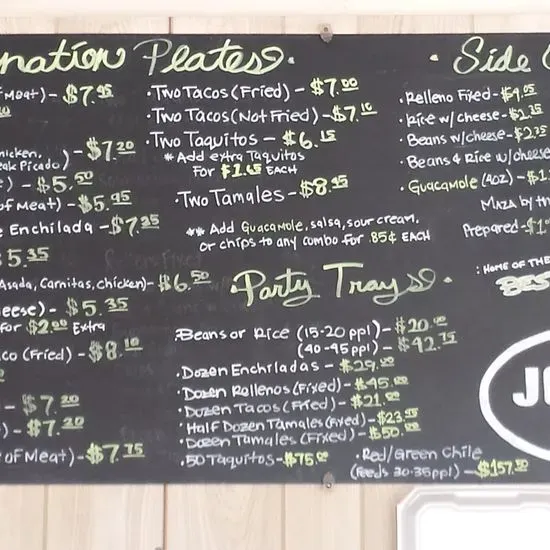 nation Plates
of Meat) - $7.95
hicken,
eak Picado) - $7.20
) - $5.50
of Meat) - $5.95
e Enchilada - $7.35
$5.35
Asada, Carnitas, chicken) - $6.50
heese) - $5.35
for $2.00 Extra
co (Fried) - $8.10
- $7.20
) - $7.20
of Meat) - $7.75
• Two Tacos (Fried) - $7.00
• Two Tacos (Not Fried) - $7.10
• Two Taquitos - $6.15
* Add extra Taquitos
for $1.65 EACH
• Two Tamales - $8.45
** Add Guacamole, salsa, sour cream,
or chips to any combo for .85¢ EACH
• Party Trays
Beans or Rice (15-20 ppl) - $20.00
(40-45 ppl) - $42.75
• Dozen Enchiladas - $29.00
• Dozen Rellenos (Fixed) - $45.00
• Dozen Tacos (Fried) - $21.00
• Half Dozen Tamales (Fixed) - $23.55
• Dozen Tamales (Fixed) - $50.00
• 50 Taquitos - $75.00
• Red/Green Chile
(feeds 30-35 ppl) - $157.50
• Side
• Relleno Fixed - $4.05
• Rice w/cheese - $2.35
• Beans w/cheese - $2.35
• Beans & Rice w/cheese
• Guacamole (4oz) - $1
Maza by th
Prepared - $1
: HOME OF THE
BES
JO